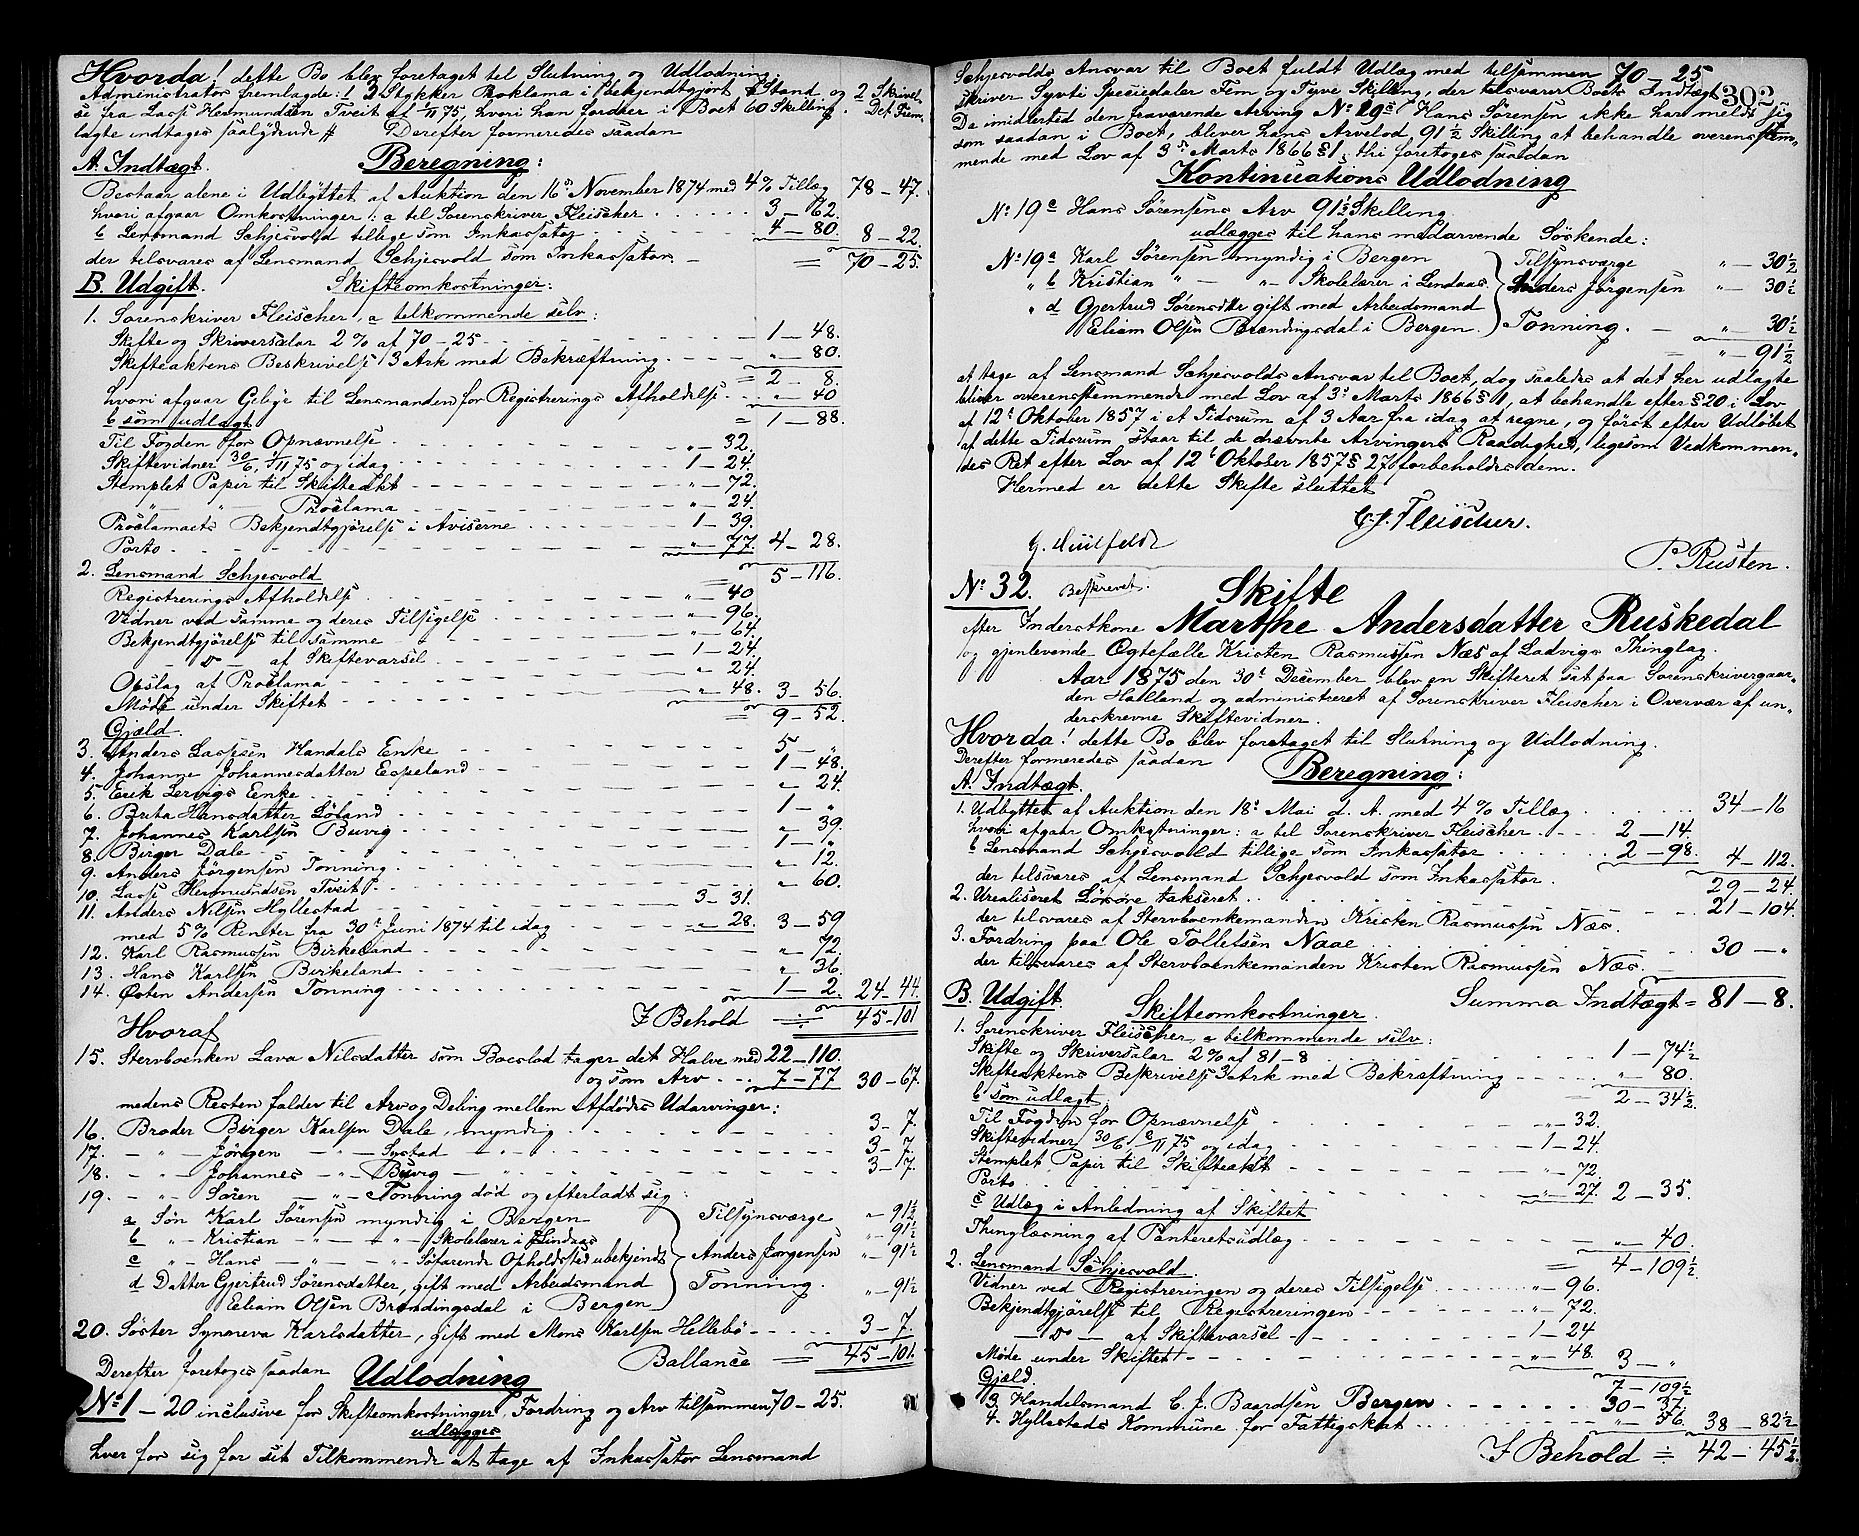 Hvorda! dette Bo blev foretaget til Slutning og Udlodning.
Administrator fremlagde: 1 3 Stykker Proklama i Bekjendtgjort Stand og 2 Skrivel-
se fra Lasse Hermundsen Tveit af 1/11 75, hvori han fordrer i Boet 60 Skilling. Det Frem-
lagte indtages saalydende # Derefter formeredes saadan
A. Indtægt. Beregning:
Bestaar alene i Udbyttet af Auktion den 16de November 1874 med 4% Tillæg 78-47.
hvori afgaar Omkostninger: a til Sorenskriver Fleischer 3-62.
b Lensmand Schjesvold tillige som Inkassator 4-80. 8-22.
der tilsvares af Lensmand Schjesvold som Inkassator - = 70-25.
B. Udgift. Skifteomkostninger:
1. Sorenskriver Fleischer, a tilkommende selv:
Skifte og Skriversalar 2% af 70-25 1-48.
Skifteaktens Beskrivelse 3 Ark med Bekræftning "-80.
= 2-8.
hvori afgaar Gebyr til Lensmanden for Registrerings Afholdelse "-40
b som udlagt = 1-88.
Til Fogden for Opnævnelse "-32.
Skiftevidner 30/6, 1/11 75 og idag 1-24.
Stemplet Papir til Skifteakt "-72.
" " Proclama "-24.
Proclamaets Bekjendtgjörelse i Aviserne 1-39.
Porto "-77. 4-28.
2. Lensmand Schjesvold = 5-116.
Registrerings Afholdelse "-40
Vidner ved Samme og deres Tilsigelse "-96.
Bekjendtgjörelse til samme "-64.
- do - af Skiftevarsel 1-24.
Opslag af Proclama "-24
Möde under Skiftet "-48. 3-56.
Gjæld. = 9-52.
3. Anders Lassesen Handals Enke 5-"
4. Johanne Johannesdatter Espeland 1-48.
5. Erik Lervigs Enke "-24.
6. Brita Hansdatter Löland 1-"
7. Johannes Karlsen Buvig "-39.
8. Birger Dale 1-"
9. Anders Jörgensen Tonning "-12.
10. Lasse Hermundsen Tveit "-60.
11. Anders Nilsen Hyllestad 3-31.
med 5% Renter fra 30te Juni 1874 til idag "-28. 3-59
12. Karl Rasmussen Birkeland "-72.
13. Hans Karlsen Birkeland "-36.
14. Østen Andersen Tonning 1-2. 24-44.
Hvoraf I Behold = 45-101
15. Stervboenken Lava Nilsdatter som Boeslod tager det Halve med 22-110.
og som Arv 7-77 30-67.
medens Resten falder til Arv og Deling mellem Afdödes Udarvinger:
16. Broder Birger Karlsen Dale, myndig 3-7.
17. - " - Jörgen - " - Systad - " - 3-7.
18. - " - Johannes - " - Buvig - " - 3-7.
19. - " - Sören - " - Tonning död og efterladt sig:
a Sön Karl Sörensen myndig i Bergen Tilsynsværge "-91½
b " - Kristian - " - " - Skolelærer i Lindaas "-91½
c " - Hans - " - " - Söfarende Opholdsted ubekjendt Anders Jörgensen "-91½
d Datter Gjertrud Sörensdatter, gift med Arbeidsmand Tonning. "-91½
Eliam Olsen Brændingsdal i Bergen
20. Söster Synneva Karlsdatter, gift med Mons Karlsen Hellebö 3-7
Ballance = 45-101.
Derefter foretoges saadan Udlodning
No 1 - 20 inclusive for Skifteomkostninger, Fordring og Arv tilsammen 70-25.
udlægges
hver for sig for sit Tilkommende at tage af Inkassator Lensmand
302
Schjesvolds Ansvar til Boet fuldt Udlæg med tilsammen 70-25
skriver Sytti Speciedaler Fem og Tyve Skilling, der tilsvarer Boets Indtægt.
Da imidlertid den fraværende Arving No 19c Hans Sörensen ikke har meldt sig
som saadan i Boet, bliver hans Arvelod 91½ Skilling at behandle overensstem-
mende med Lov af 3de Marts 1866 § 1, thi foretoges saadan
Kontinuations Udlodning
No 19c Hans Sörensens Arv 91½ Skilling
udlægges til hans medarvende Söskende:
No 19a Karl Sörensen myndig i Bergen Tilsynsværge "-30½
" b Kristian " - " - Skolelærer i Lindaas Anders Jörgensen "-30½
" d Gjertrud Sörensdtr gift med Arbeidsmand
Eliam Olsen Brændingsdal i Bergen. Tonning. - "-30½
= "-91½
at tage af Lensmand Schjesvolds Ansvar til Boet, dog saaledes at det her udlagte
bliver overensstemmende med Lov af 3de Marts 1866 § 1, at behandle efter § 20 i Lov
af 12te Oktober 1857 i et Tidsrum af 3 Aar fra idag at regne, og først efter Udløbet
af dette Tidsrum staar til de nævnte Arvingers Raadighed, ligesom Vedkommen-
des Ret efter Lov af 12te Oktober 1857 § 27 forbeholdes dem.
Hermed er dette Skifte sluttet
C.J. Fleischer.
P. Rusten.
No 32. Beskrevet. Skifte
efter Inderstkone Marthe Andersdatter Ruskedal
og gjenlevende Ægtefælle Kristen Rasmussen Næs af Ladvigs Thinglag.
Aar 1875 den 30te December blev en Skifteret sat paa Sorenskrivergaar-
den Halland og administreret af Sorenskriver Fleischer i Overvær af un-
derskrevne Skiftevidner.
Hvorda! dette Bo blev foretaget til Slutning og Udlodning.
Derefter formeredes saadan Beregning:
A. Indtægt.
1. Udbyttet af Auktion den 18de Mai d. A. med 4% Tillæg 34-16
hvori afgaar Omkostninger: a til Sorenskriver Fleischer 2-14.
b Lensmand Schjesvold tillige som Inkassator 2-98. 4-112.
der tilsvares af Lensmand Schjesvold som Inkassator. 29-24.
2. Urealiseret Lösöre takseret 21-104.
der tilsvares af Stervboenkemanden Kristen Rasmussen Næs.
3. Fordring paa Ole Tollefsen Naae 30-"
der tilsvares af Stervboenkemanden Kristen Rasmussen Næs.
B. Udgift. Skifteomkostninger. Summa Indtægt = 81-8.
1. Sorenskriver Fleischer, a tilkommende selv:
Skifte og Skriversalar 2% af 81-8 1-74½
Skifteaktens Beskrivelse 3 Ark med Bekræftning "-80.
b som udlagt = 2-34½.
Til Fogden for Opnævnelse "-32.
Skiftevidner 30/6 2/11 75 og idag 1-24.
Stemplet Papir til Skifteakt "-72
Porto "-27. 2-35.
c Udlæg i Anledning af Skiftet
Thinglæsning af Panteretsudlæg "-40.
2. Lensmand Schjesvold = 4-109½
Vidner ved Registreringen og deres Tilsigelse "-96.
Bekjendtgjörelse til Registreringen "-72.
- do - af Skiftevarsel 1-24
Möde under Skiftet "-48. 3-"
Gjæld. 7-109½
3. Handelsmand C. J. Baardsen Bergen 30-37.
4. Hyllestads Kommune for Fattigskat "-56. 38-82½
I Behold = 42-45½.